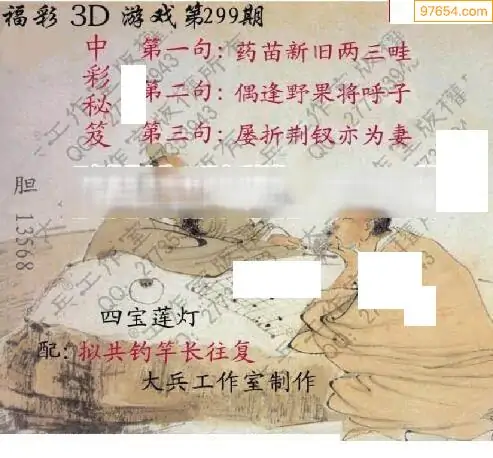 福彩 3D 游戏第299期
97654.com
中彩秘笈
第一句：药苗新旧两三哇
第二句：偶逢野果将呼子
第三句：屡折荆钗亦为妻
胆 13568
四宝莲灯
配：拟共钓竿长往复
大兵工作室制作